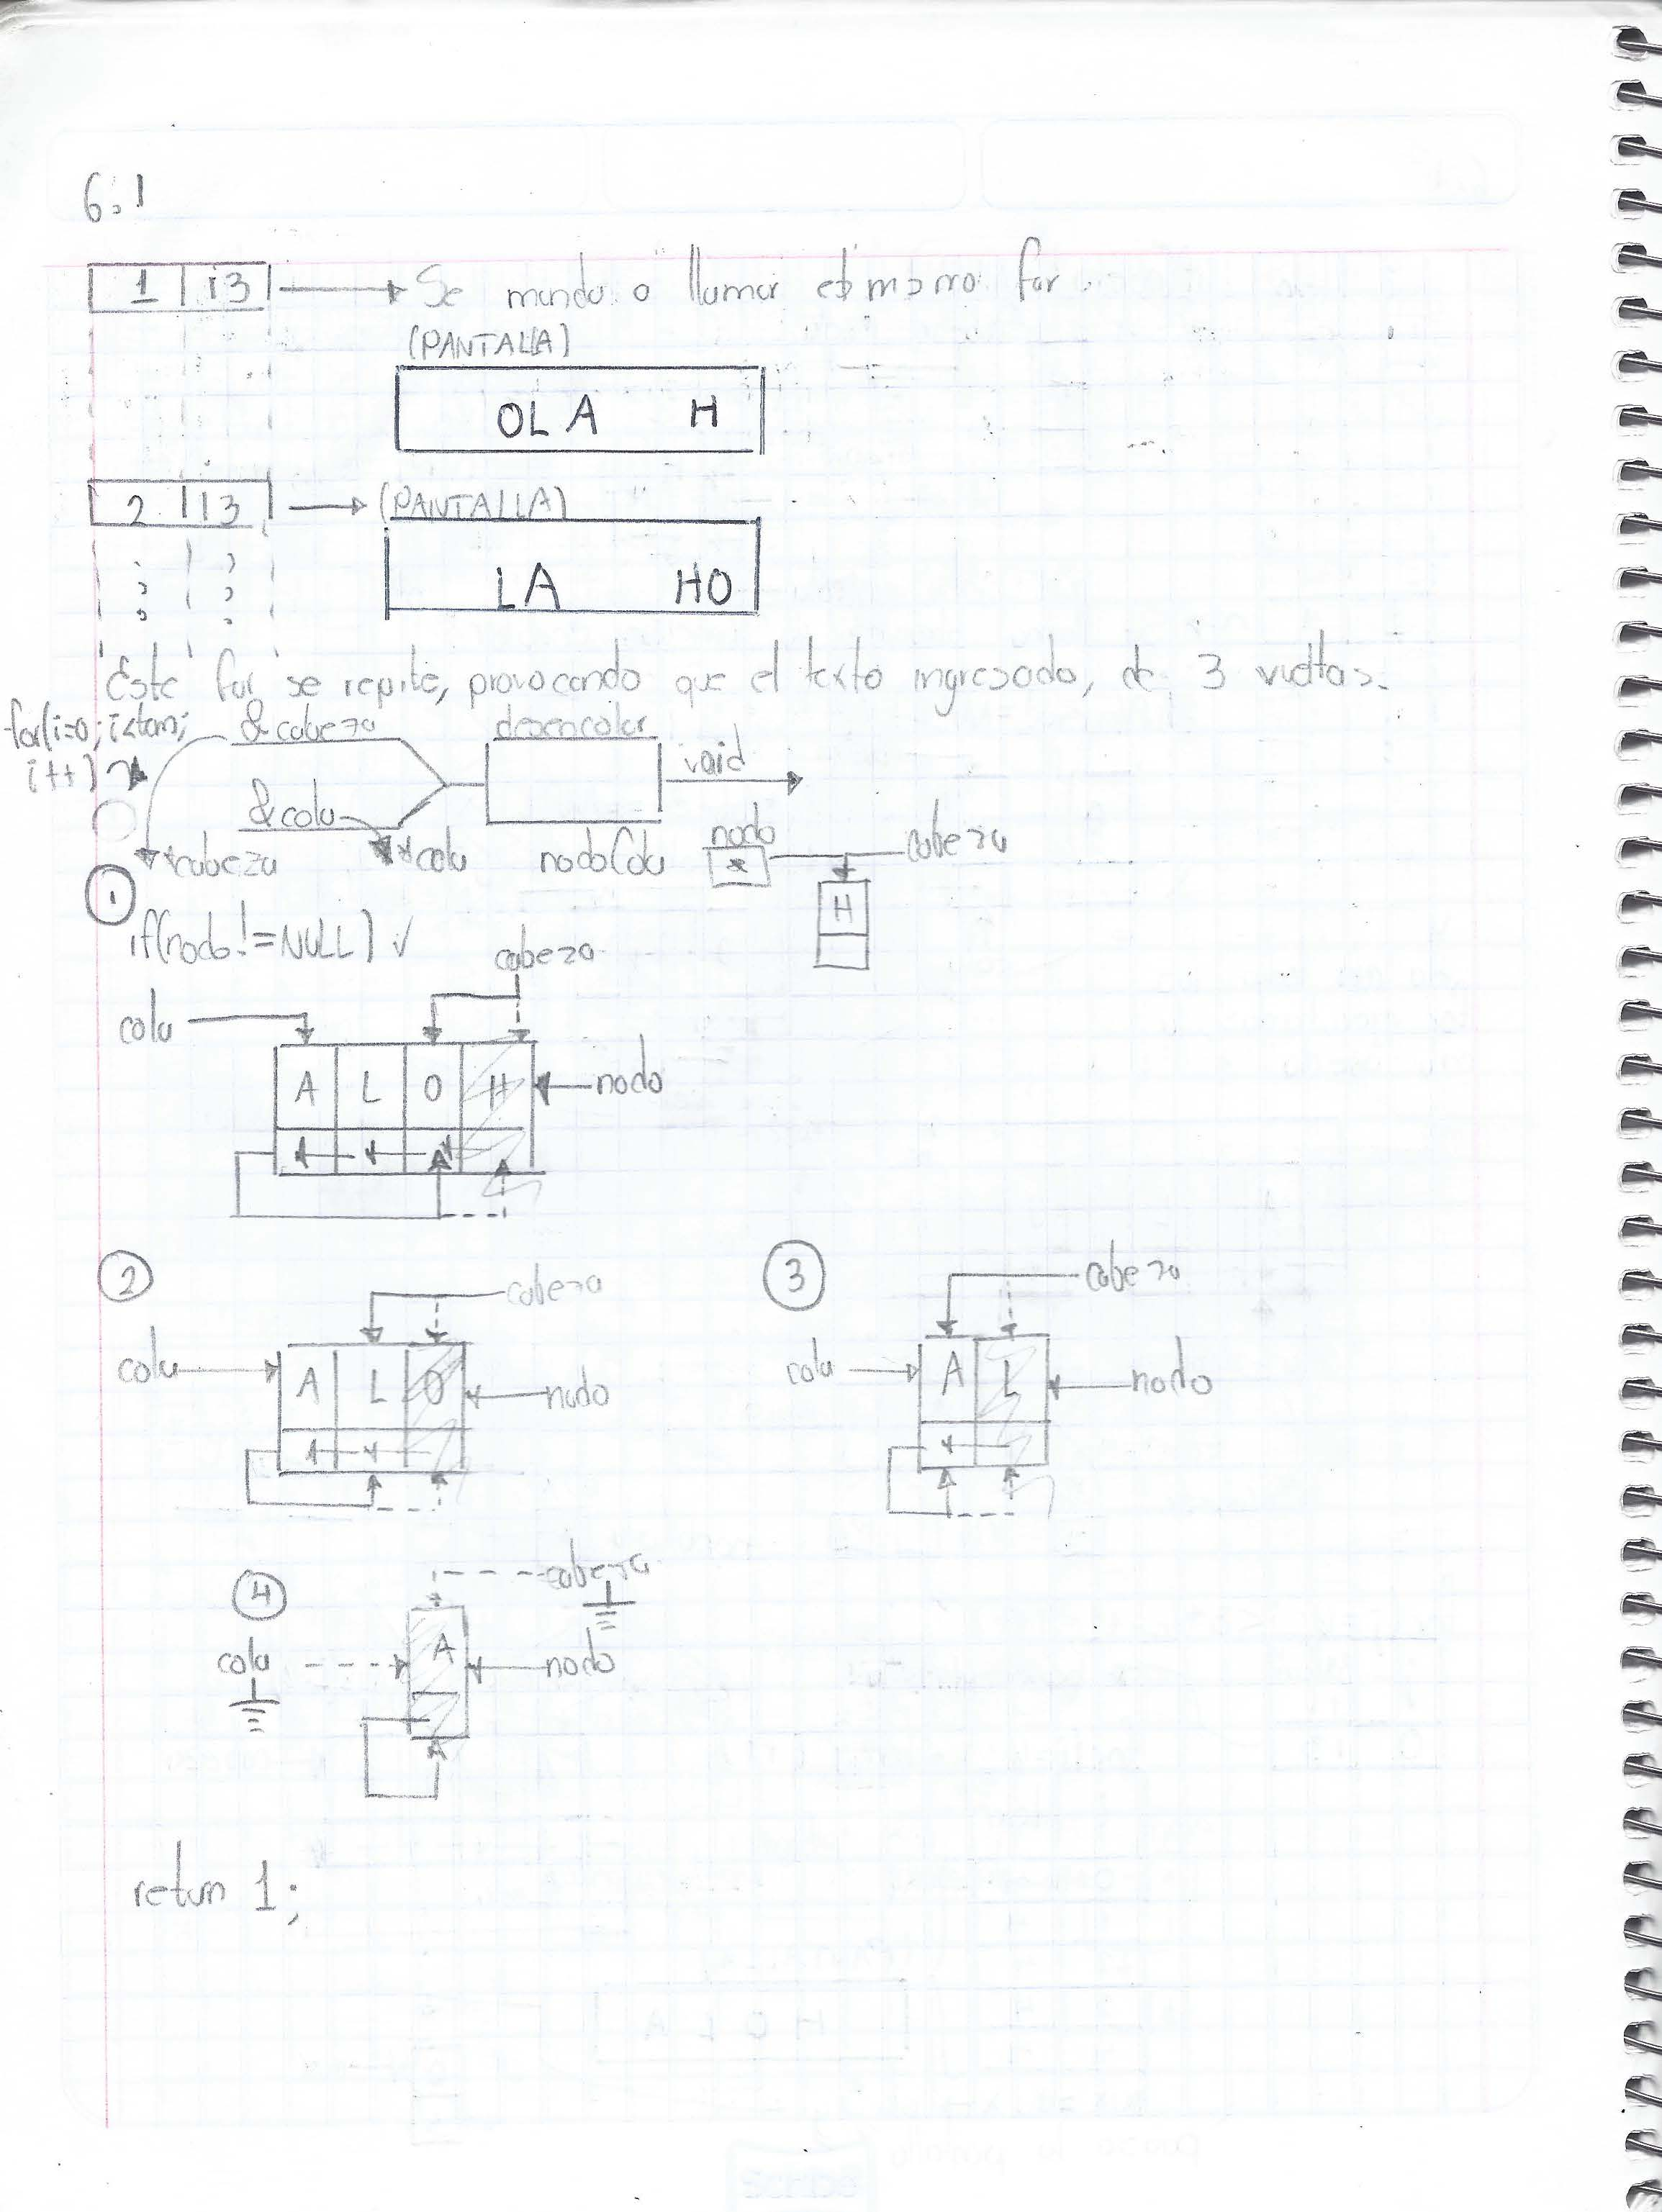 6.1
1 13 Se manda a llamar el mismo for.
(PANTALLA)
OLA H
2 13 (PANTALLA)
LA HO
Este for se repite, provocando que el texto ingresado, de 3 vueltas.
for(i=0; i<tam;
i++)
&cabeza
desencolar
void
&cola
*cabeza
*cola
nodoCola
nodo
*
cabeza
H
1
if(nodo!=NULL) ✓
cabeza
cola
A L O H
nodo
2
cabeza
cola
A L O
nodo
3
cabeza
cola
A L
nodo
4
cabeza
cola
A
nodo
return 1;